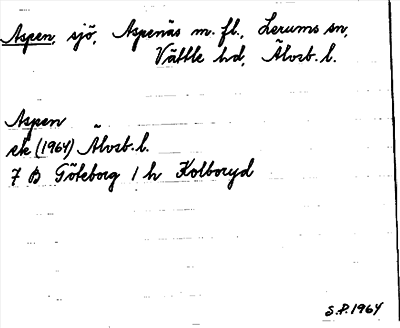 Aspen, sjö, Aspenäs m. fl., Lerums sn,
Vättle hd, Älvsb. l.
Aspen
ek (1964) Älvsb. l.
7 B Göteborg 1 h Kolboryd
S.P. 1964